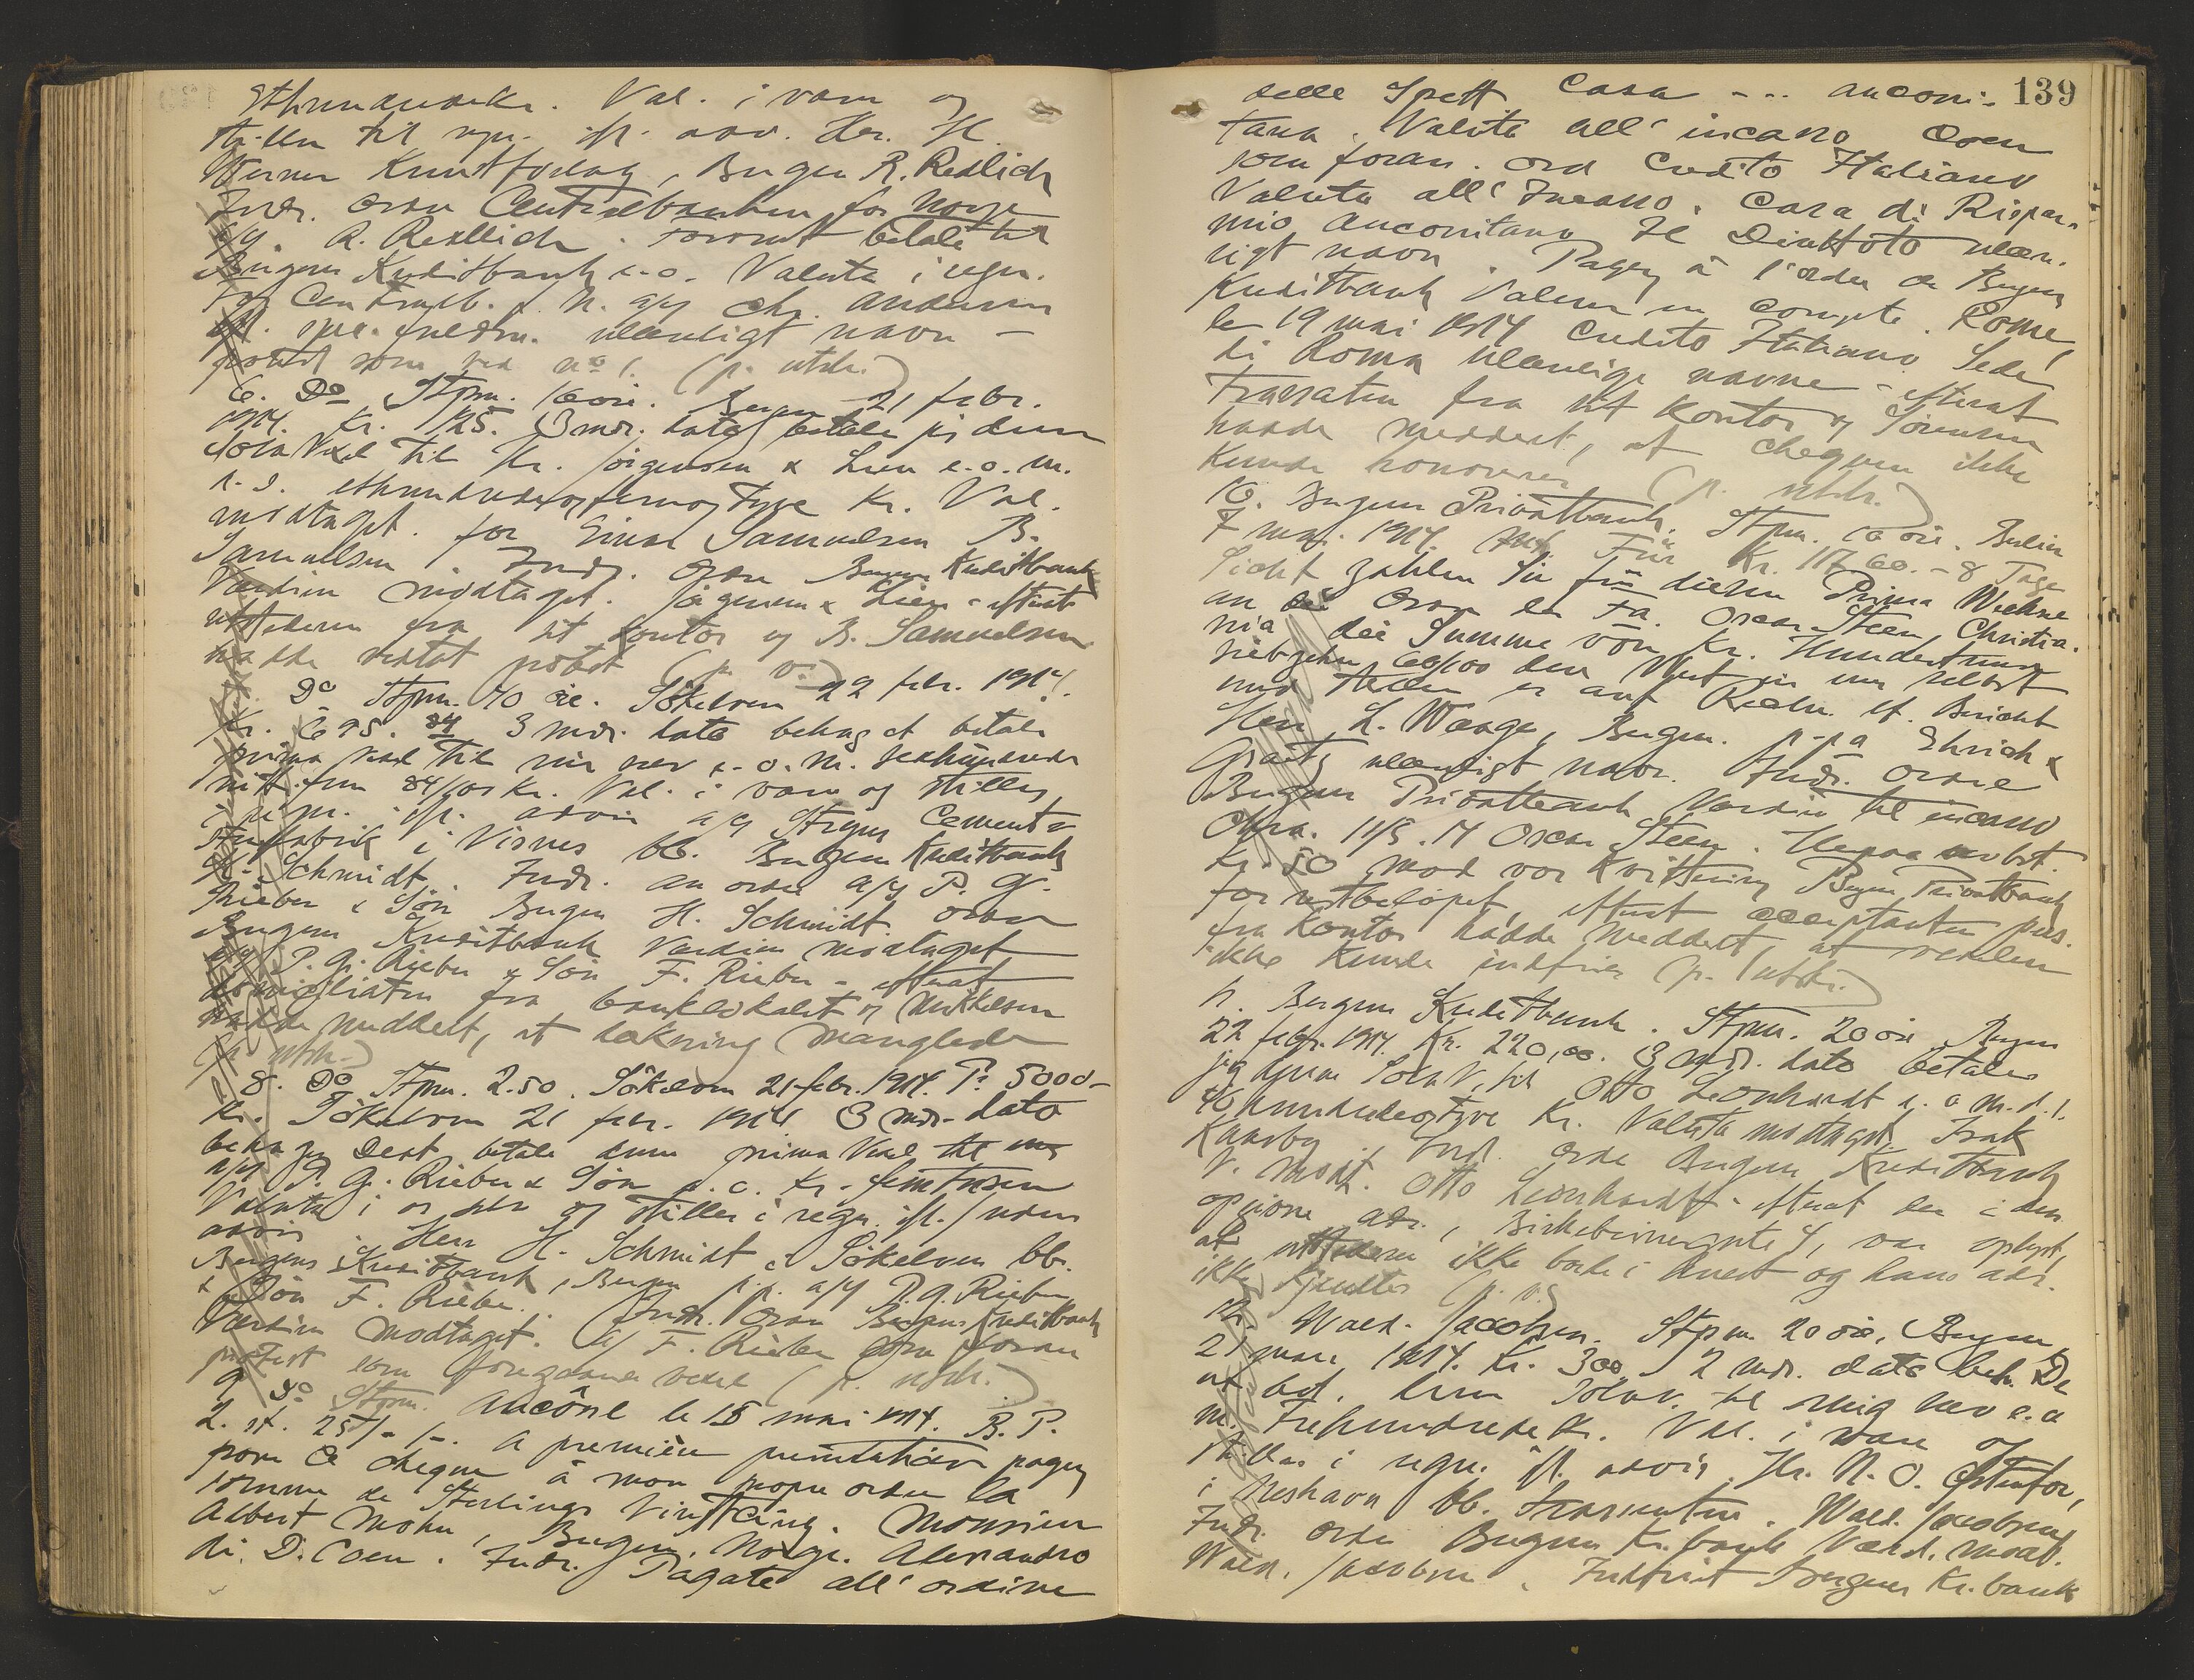 Val. i vare og
stilles til regn. ifl. adv. Hr. H.
Werner Kunstforlag, Bergen R. Redlich
Indr. ordre Centralbanken for Norge
a/g. R. Redlich. betale til
Bergens Kreditbank e.o. Valuta i regn.
Centralb. f. N. a/g Chr. Andersen
ulæseligt navn -
protest som ved no 1. (p. utstr.)
6. Do Stpm. Bergen 21 febr.
1914. Kr. 125. 3 mdr. dato betaler jeg denne
Sola Vexel til Hr. Jörgensen & Lien e.o. m.
d. s. ethundredeogfemogtyve Kr. Val.
modtaget. for Einar Samuelsen B.
Samuelsen. Indr. Ordre Bergens Kreditbank
Værdien modtaget. Jörgensen & Lien - efterat
utstederen fra sit kontor og B. Samuelsen
hadde vedtat protest (p. v.)
Do Stpm. 70 öre. Sökelven 22 febr. 1914.
Kr. 695.84 3 mdr. dato behag at betale
prima vexel til mig selv e.o.m. sekshundrede
nitti fem 84/100 Kr. Val. i vare og stilles
i regn. ifl. advis a/s Stegen Cement &
fabrik i Visnes bb. Bergens Kreditbank
H. Schmidt. Indr. an ordre a/s P. G.
Rieber & Sön Bergen H. Schmidt. ordre
Bergens Kreditbank Værdien modtaget
a/s P. G. Rieber & Sön F. Rieber - efterat
domiciliaten fra banklokalet og Mikkelsen
hadde meddelt, at dækning manglede
(p. utstr.)
8. Do Stpm. 2.50. Sökelven 21 febr. 1914. Pr 5000-
Kr. Sökelven 21 febr. 1914 3 mdr. dato
behag Dest betale denne prima Vexel til os
a/s P. G. Rieber & Sön e. o. Kr. femtusen
Valuta i os selv og stilles i regn. ifl. / uden
advis Herr H. Schmidt i Sökelven bb.
Bergens Kreditbank, Bergen p.p. a/s P. G. Rieber
& Sön F. Rieber. Indr. Ordre Bergens Kreditbank
Værdien modtaget. a/s F. Rieber som foran
protest som foregaaende vexel (p. utstr.)
9 Do Stpm. Ancône le 15 mai 1914. B. P.
L. st. 25/-/-. A première présentation payez
pour ce cheque à mon propre ordre la
somme de Sterlings Vingtcinq. Monsieur
Albert Mohn, Bergen, Norge. Alessandro
di D. Coen. Indr. Pagate all' ordine
139
delle Spett. Casa --- anconi-
tana. Valuta all' incasso Coen
som foran. Ord Credito Italiano
Valuta all' Incasso. Casa di Rispar-
mio Anconitana Il Direttore ulæse-
ligt navn. Payez à l'ordre de Bergens
Kreditbank Valeur en compte. Rome,
le 19 mai 1914 Credito Italiano Sede
di Roma ulæselige navne - efterat
Trassaten fra sit kontor og Sörensen
hadde meddelt, at chequen ikke
kunde honoreres (p. utstr.)
10. Bergens Privatbank. Stpm. 10 öre. Berlin
7 mai. 1914. Für Kr. 117.60. - 8 Tage
Sicht zahlen Sie für diesen Prima Wechsel
an die Ordre der Fa. Oscar Steen, Christia-
nia die Summe von Kr. Hundertund
siebzehn 60/100 den Wert in uns selbst
und stellen es auf Rechn. lt. Bericht
Herr L. Waage, Bergen. p.pa Ehrich &
Graetz ulæseligt navn. Indr. Ordre
Bergens Privatbank Værdien til incasso
Chra. 11/5. 14 Oscar Steen. Herpaa avbet.
Kr. 50 mod vor Kvittering Bergens Privatbank
for restbelöpet, efterat acceptanten pers.
fra kontor hadde meddelt, at vexelen
ikke kunde indfries (p. utstr.)
11. Bergens Kreditbank. Stpm. 20 öre Bergen
22 febr. 1914. Kr. 220,00. 3 mdr. dato betaler
jeg denne Sola V. til Otto Leonhardt e. o m. d. s.
tohundredeogtyve Kr. Valuta modtaget. Isak
Kaarby. Ind. Ordre Bergens Kreditbank
V. modt. Otto Leonhardt - efterat der i den
opgivne adr., Birkebeinergate 4, var oplyst,
at utstederen ikke bodde i huset og hans adr.
ikke kjendtes (p. v.)
12. Wald. Jacobsen. Stpm 20 öre. Bergen
21 mars 1914. Kr. 300. 2 mdr. dato beh. De
at bet. denne Solav. til mig selv e. o
m. Trehundrede Kr. Val. i vare og
stilles i regn. ifl. advis Hr. N. O. Östenfor,
i Neshavn bb. trassenten. Wald. Jacobsen
Indr. Ordre Bergens Kr.bank Værd. modt.
Wald. Jacobsen. Indfriet Bergens Kr.bank